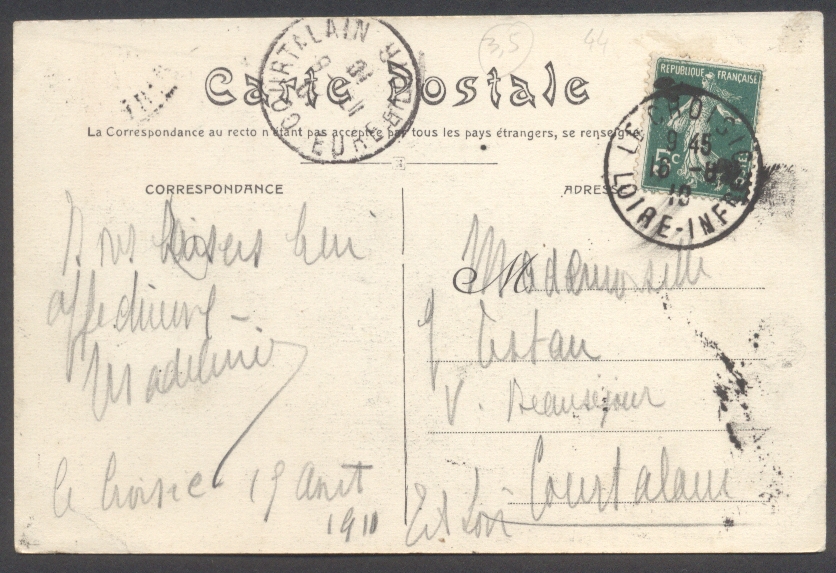 3,5
44
COURTALAIN
EURE-ET-
Carte Postale
La Correspondance au recto n'étant pas acceptée par tous les pays étrangers, se renseigner
RÉPUBLIQUE FRANÇAISE
5c
LE CROISIC
9 45
16 -8
10
LOIRE-INFRE
CORRESPONDANCE
ADRESSE
Nos baisers bien
affectueux
Madeleine
Le Croisic 15 Août
1910
M
Mademoiselle
Y Testau
V. Beauséjour
Courtalain
Et Loir